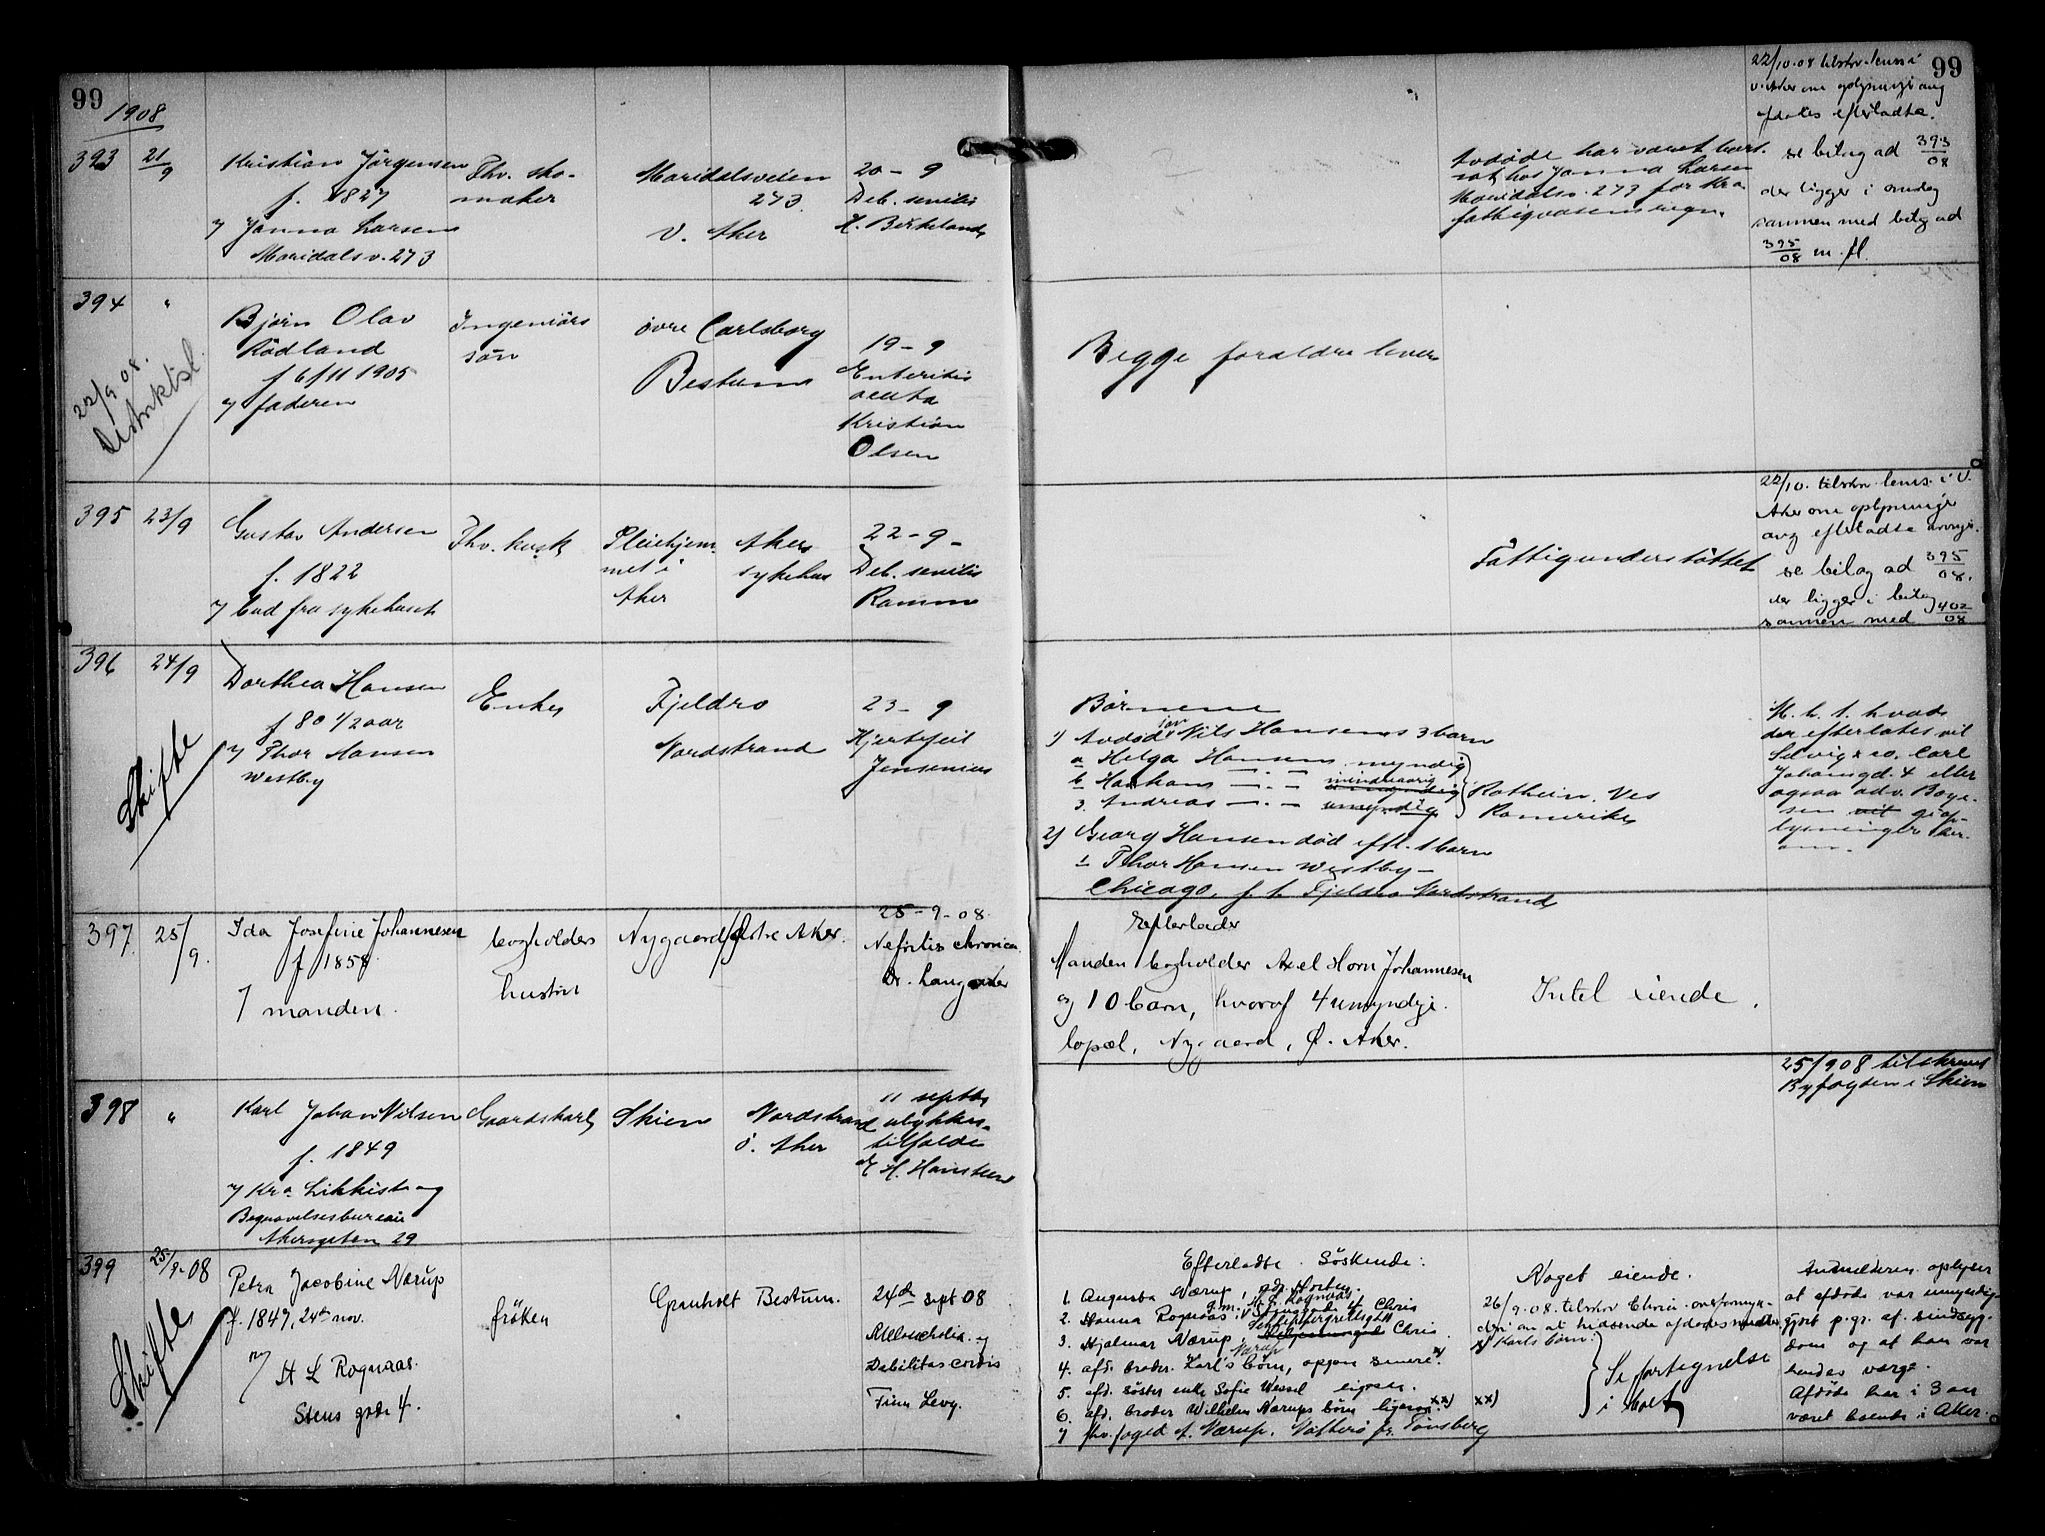 99
1908
393
21/9
Kristian Jörgensen
f. 1827
Janna Larsen
Maridalsv. 273
Fhv. sko-
maker
Maridalsveien
273
V. Aker
20 - 9
Deb. senilis
H. Birkeland
Avdöde har været bort-
sat hos Janna Larsen
Maridalsv. 273 for Kra
fattigvæsens regn.
99
22/10.08 tilskr. lensm i
V. Aker om oplysninger ang
afdødes efterladte.
se bilag ad 393/08
der ligger i omslag
sammen med bilag ad
395/08 m. fl.
394
"
22/9 08.
Distriktsl.
Bjørn Olav
Rödland
f 6/11 1905
faderen
Ingeniörs
sön
övre Carlsborg
Bestum
19 - 9
Enteritis
acuta
Kristian
Olsen
Begge foraldre lever
395
23/9
Gustav Andersen
f. 1822
bud fra sykehuset
Fhv. kusk
Pleiehjem-
met i
Aker
Akers
sykehus
22 - 9 -
Deb. senilis
Ramm
Fattigunderstöttet
22/10. tilskr. lensm. i V.
Aker om oplysninger
ang efterladte arvinger.
se bilag ad 395/08.
der ligger i bilag
sammen med 402/08
396
24/9
Skifte
Dorthea Hansen
f 80 1/2 aar
Thor Hansen
Westby
Enke
Fjeldro
Nordstrand
23 - 9
Hjertefeil
Jensenius
Börnene
1) Avdöde sön Nils Hansens 3 barn
a Helga Hansen myndig
b Haakon - " - mindreaarig
3. Andreas - " - umyndig
Romerike
2) Georg Hansen död eftl. 1 barn
1 Thor Hansen Westby -
Chicago, f. t. Fjeldro Nordstrand
M. h. t. hvad
der efterlates vil
Selvig & co. Carl
Johansgd. 4 eller
ogsaa adv. Boye-
sen vil gi op-
lysninger her-
om.
397
25/9.
Ida Josefine Johannesen
f 1858
manden.
bogholders
hustru
Nygaard
Østre Aker.
25 - 9 - 08
Nefritis chronica
Dr. Langaker
Efterlader
Manden bogholder Axel Horn Johannesen
og 10 barn, hvoraf 4 umyndige.
bopæl, Nygaard, Ø. Aker.
Intet eiende.
398
"
Karl Johan Nilsen
f. 1849
Kra Likkiste og
Begravelsesbureau
Akersgaten 29
Gaardskarl
Skien
Nordstrand
ö. Aker
11 septbr
ulykkes-
tilfælde
H. Hansteen
25/9 08 tilskrevet
Byfogden i Skien
399
25/9-08
Skifte
Petra Jacobine Nærup
f. 1847, 24de nov.
H L Rognaas
Stens gade 4.
fröken
Granholt
Bestum.
24de sept 08
Melancholia og
Debilitas cordis
Finn Levy.
Efterladte Söskende:
1. Augusta Nærup, adr. Horten.
2. Hanna Rognaas, g.m. H. L. Rognaas, Chris
3. Hjalmar Nærup, Chris.
4. afd. broder Karl's Nærup börn, opgave senere x)
5. afd. söster enke Sofie Wessel ligesaa.
6. afd. broder Wilhelm Nærups börn ligesaa xx)
7 fhv. foged A. Nærup, Nötterö pr. Tönsberg
Noget eiende.
26/9.08. tilskr Chra. overformyn-
deri om at hidsende afdödes midler.
x) Karls börn:
xx)
Se fortegnelse
i boet
Anmelderen oplyser
at afdöde var umyndig-
gjort p.gr. af sindssyg-
dom og at han var
hendes værge.
Afdöde har i 3 aar
været boende i Aker.